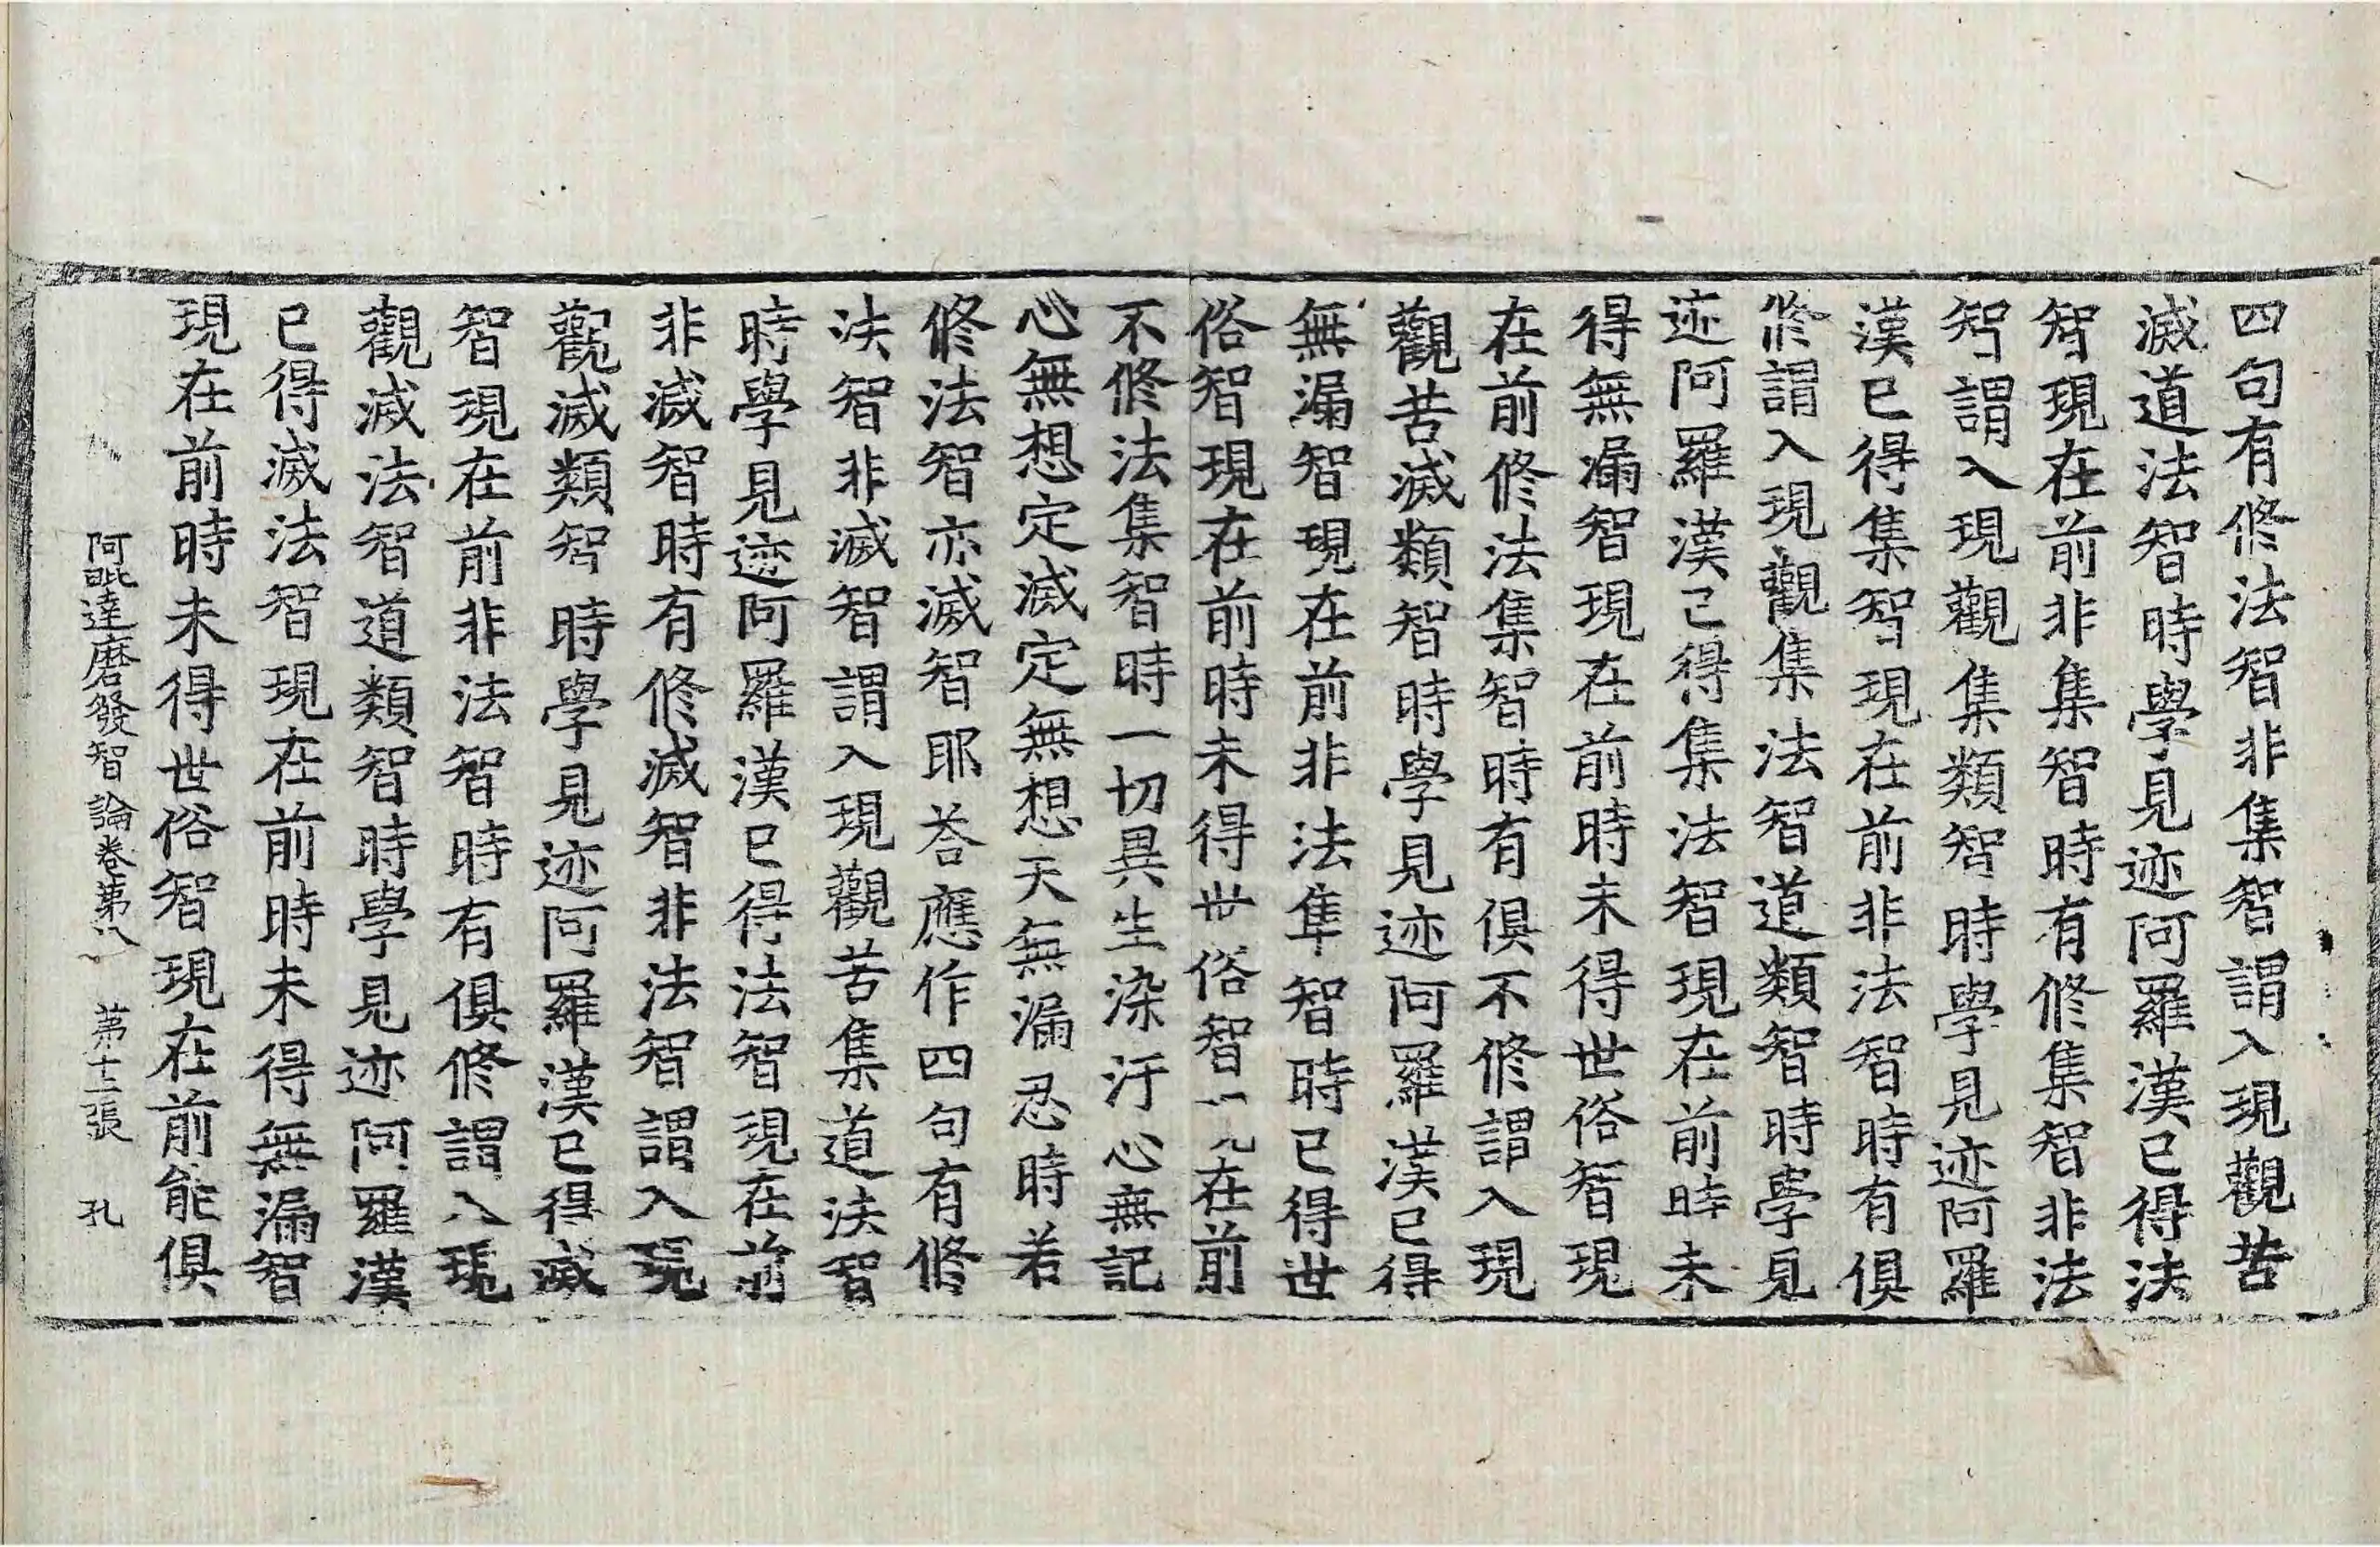 四句有修法智非集智謂入現觀苦
滅道法智時學見迹阿羅漢已得法
智現在前非集智時有修集智非法
智謂入現觀集類智時學見迹阿羅
漢已得集智現在前非法智時有俱
修謂入現觀集法智道類智時學見
迹阿羅漢已得集法智現在前時未
得無漏智現在前時未得世俗智現
在前修法集智時有俱不修謂入現
觀苦滅類智時學見迹阿羅漢已得
無漏智現在前非法集智時已得世
俗智現在前時未得世俗智在前
不修法集智時一切異生染汙心無記
心無想定滅定無想天無漏忍時若
修法智亦滅智耶荅應作四句有修
法智非滅智謂入現觀苦集道法智
時學見迹阿羅漢已得法智現在前
非滅智時有修滅智非法智謂入現
觀滅類智時學見迹阿羅漢已得滅
智現在前非法智時有俱修謂入現
觀滅法智道類智時學見迹阿羅漢
已得滅法智現在前時未得無漏智
現在前時未得世俗智現在前能俱
阿毗達磨發智論卷第八 第十二張 孔